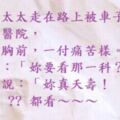 太太走在路上被車子
醫院，
胸前，一付痛苦樣。
：「妳要看那一科？
說：「妳真夭壽！
?? 都看～～～